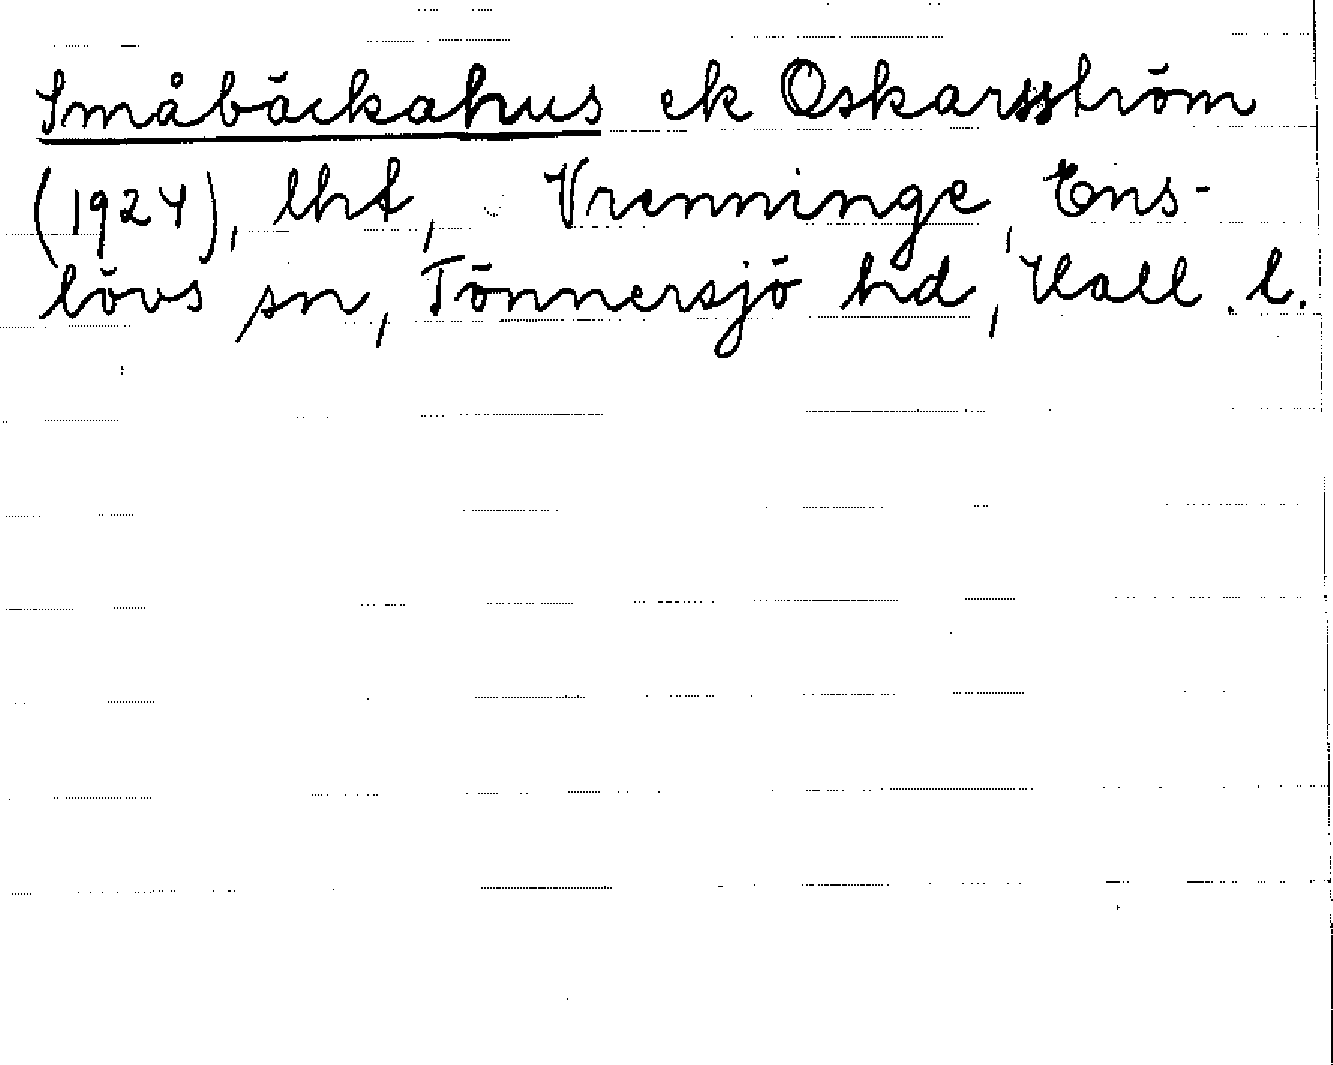 Småbäckahus ek Oskarsström
(1924), lht, Vrenninge, Ens-
lövs sn, Tönnersjö hd, Hall. l.